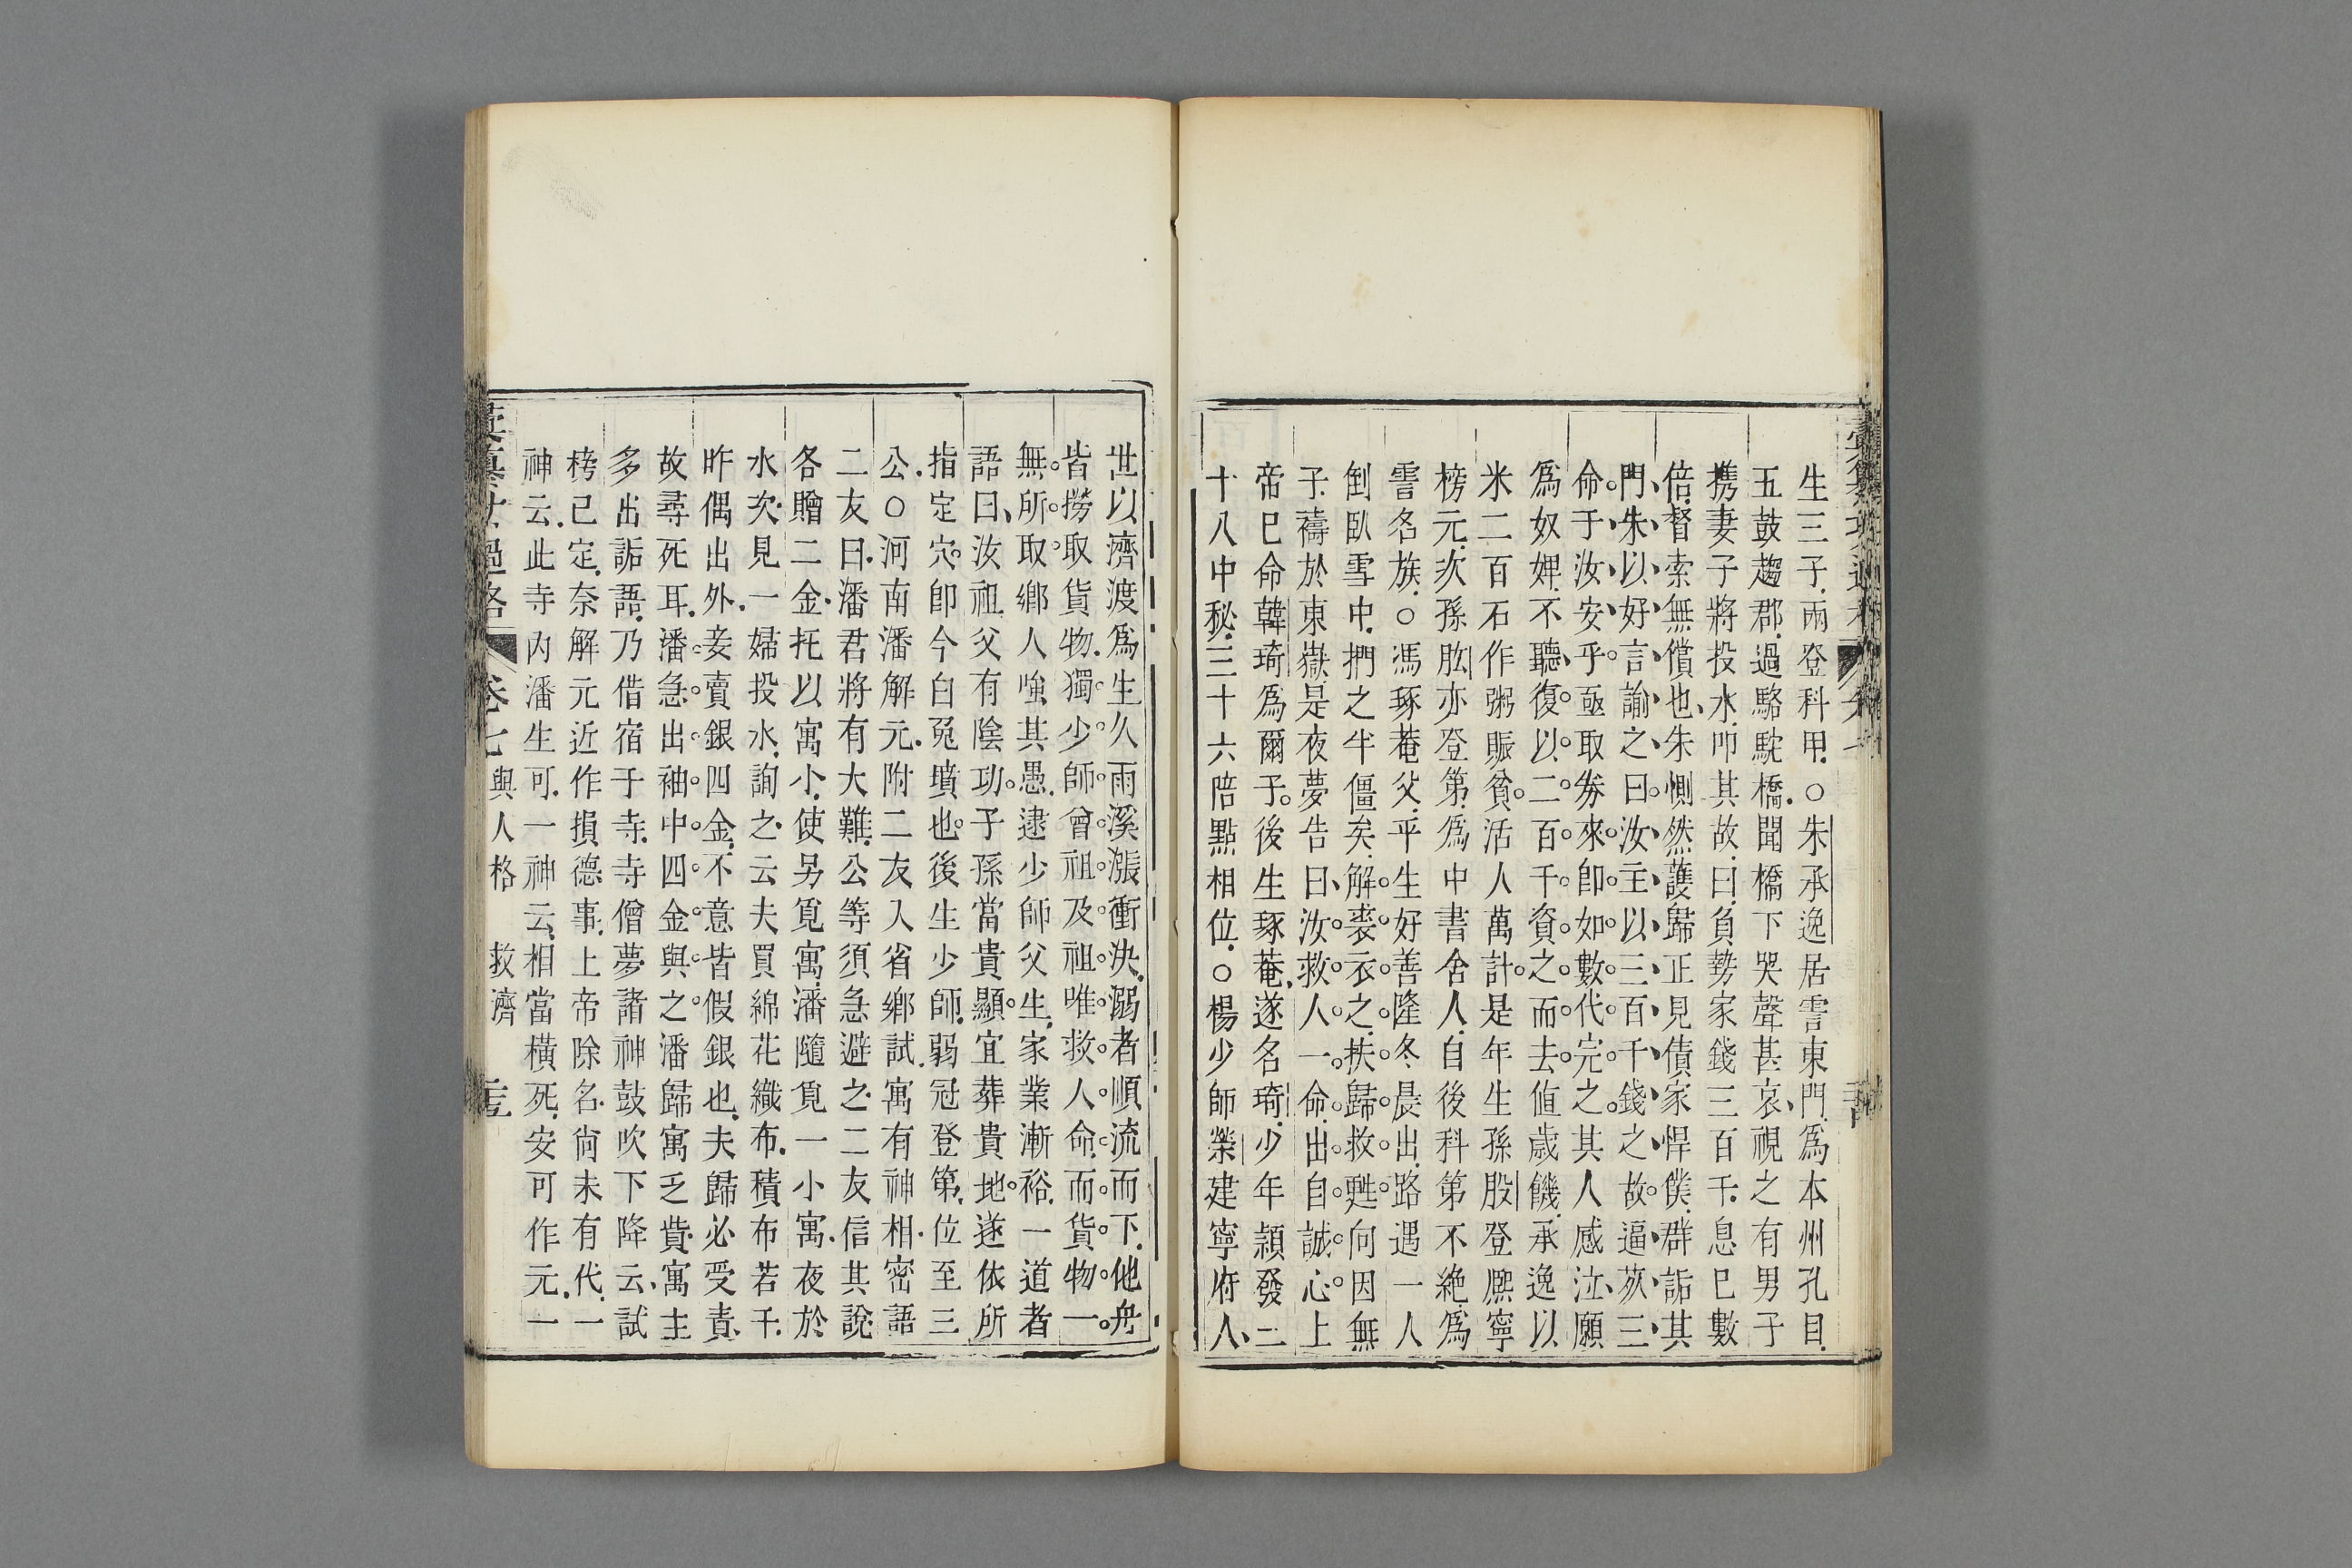 生三子兩登科甲○朱承逸居霅東門為本州孔目
五鼓趨郡過駱駝橋聞橋下哭聲甚哀視之有男子
携妻子將投水叩其故曰負勢家錢三百千息已數
倍督索無償也朱惻然護歸正見債家悍僕群詬其
門朱以好言諭之曰汝主以三百千錢之故逼茨三
命于汝安乎亟取劵來卽如數代完之其人感泣願
爲奴婢不聽復以二百千資之而去值歲饑承逸以
米二百石作粥賑貧活人萬計是年生孫股登熈寧
榜元次孫肱亦登第爲中書舍人自後科第不絶爲
霅名族○馮琢菴父平生好善隆冬晨出路遇一人
倒臥雪中捫之半僵矣解裘衣之扶歸救甦何因無
子禱於東嶽是夜夢告曰汝救人一命出自誠心上
帝已命韓琦爲爾子後生琢菴遂名琦少年頴發二
十八中秘三十六陪點相位○楊少師榮建寧府人
世以濟渡爲生久雨溪漲衝決溺者順流而下他舟
皆撈取貨物獨少師曾祖及祖唯救人命而貨物一
無所取鄉人嗤其愚逮少師父生家業漸裕一道者
語曰汝祖父有陰功子孫當貴顯宜葬貴地遂依所
指定穴卽今白兎墳也後生少師弱冠登第位至三
公○河南潘解元附二友入省鄉試寓有神相密語
二友曰潘君將有大難公等須急避之二友信其說
各贈二金托以寓小使另覓寓潘隨覓一小寓夜於
水次見一婦投水詢之云夫買綿花織布積布若干
昨偶出外妾賣銀四金不意皆假銀也夫歸必受責
故尋死耳潘急出袖中四金與之潘歸寓乏貲寓主
多出詬語乃借宿于寺寺僧夢諸神鼓吹下降云試
榜已定奈解元近作損德事上帝除名尙未有代一
神云此寺内潘生可一神云相當橫死安可作元一
卷七 與人格 救濟